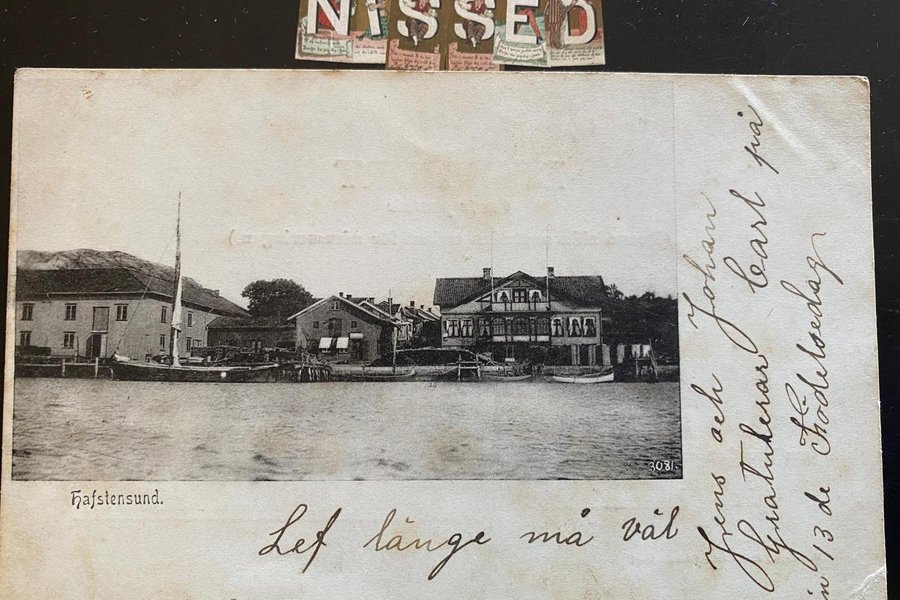 NISSED
3081.
Hafstensund.
Lef länge må väl
Jens och Johan
Gratulerar Carl på
in 13 de Födelsedag